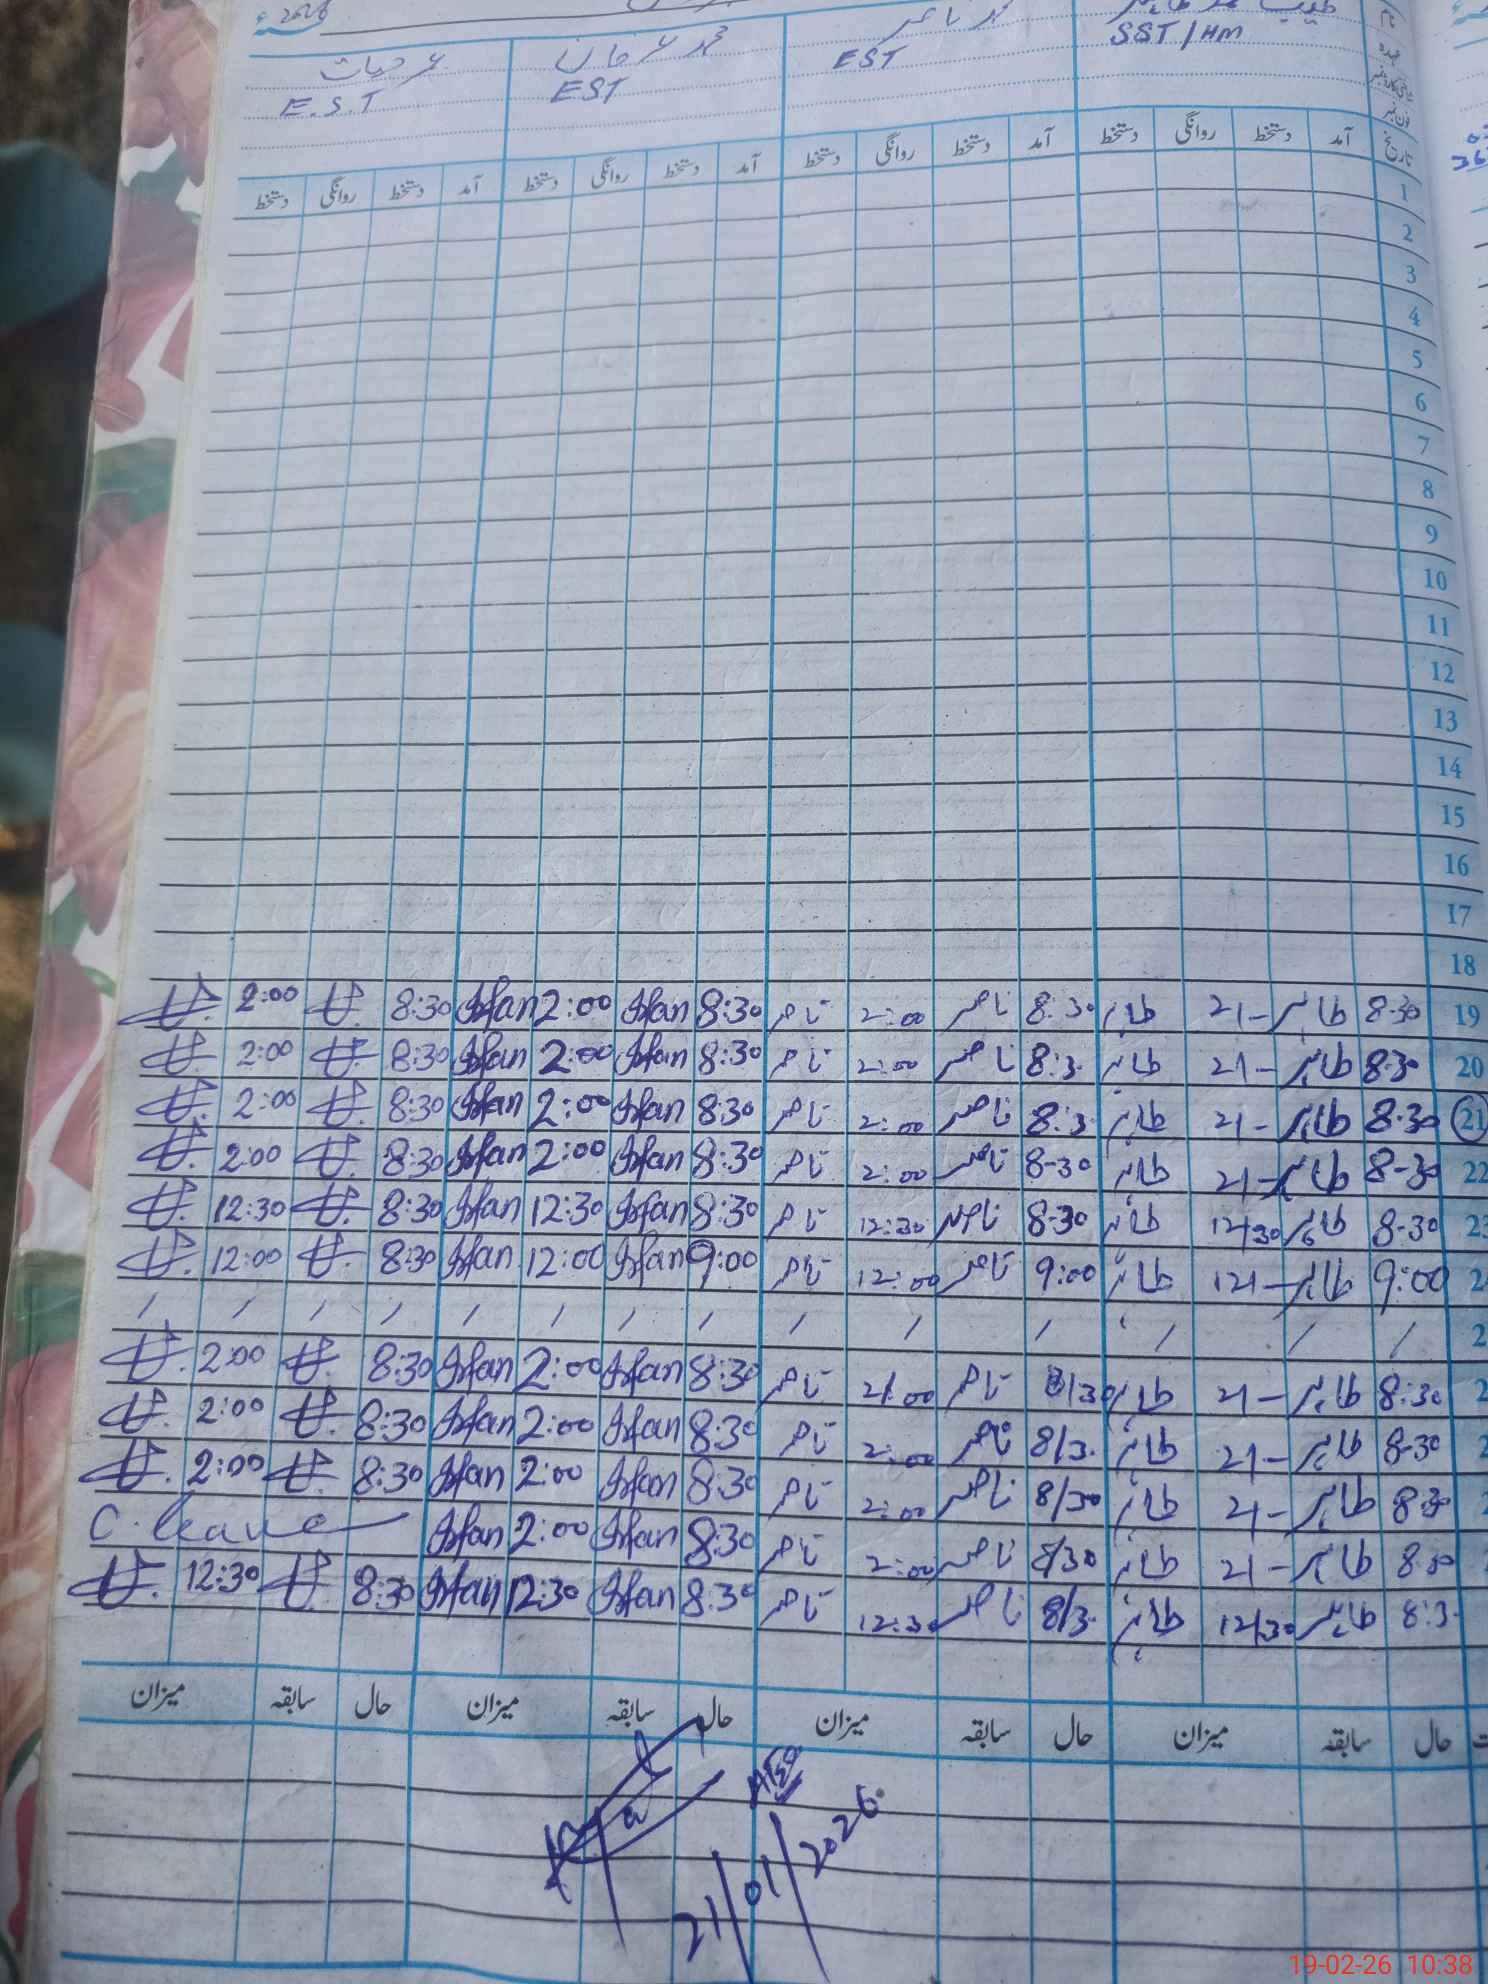 2026ء
SST / HM
محمد ناصر EST
محمد عرفان EST
عمر حیات E.S.T
تاریخ آمد دستخط روانگی دستخط آمد دستخط روانگی دستخط آمد دستخط روانگی دستخط آمد دستخط روانگی دستخط
1
2
3
4
5
6
7
8
9
10
11
12
13
14
15
16
17
18
19 8:30 طاہر 21- طاہر 8:30 ناصر 2:00 ناصر 8:30 Irfan 2:00 Irfan 8:30 2:00
20 8:30 طاہر 21- طاہر 8:3. ناصر 2:00 ناصر 8:30 Irfan 2:00 Irfan 8:30 2:00
21 8:30 طاہر 21- طاہر 8:3. ناصر 2:00 ناصر 8:30 Irfan 2:00 Irfan 8:30 2:00
22 8-30 طاہر 21- طاہر 8-30 ناصر 2:00 ناصر 8:30 Irfan 2:00 Irfan 8:30 2:00
23 8-30 طاہر 12/30 طاہر 8-30 ناصر 12:30 ناصر 8:30 Irfan 12:30 Irfan 8:30 12:30
9:00 طاہر 121- طاہر 9:00 ناصر 12:00 ناصر 9:00 Irfan 12:00 Irfan 8:30 12:00
/ / / / / / / / / / / / / / /
8:30 طاہر 21- طاہر 8/30 ناصر 2/:00 ناصر 8:30 Irfan 2:00 Irfan 8:30 2:00
8-30 طاہر 21- طاہر 8/3. ناصر 2:00 ناصر 8:30 Irfan 2:00 Irfan 8:30 2:00
8:30 طاہر 21- طاہر 8/30 ناصر 2:00 ناصر 8:30 Irfan 2:00 Irfan 8:30 2:00
8:30 طاہر 21- طاہر 8/30 ناصر 2:00 ناصر 8:30 Irfan 2:00 Irfan C. leave
8:3 طاہر 12/30 طاہر 8/3. ناصر 12:30 ناصر 8:30 Irfan 12:30 Irfan 8:30 12:30
حال سابقہ میزان حال سابقہ میزان حال سابقہ میزان حال سابقہ میزان
AEO
21/01/2026
19-02-26 10:38